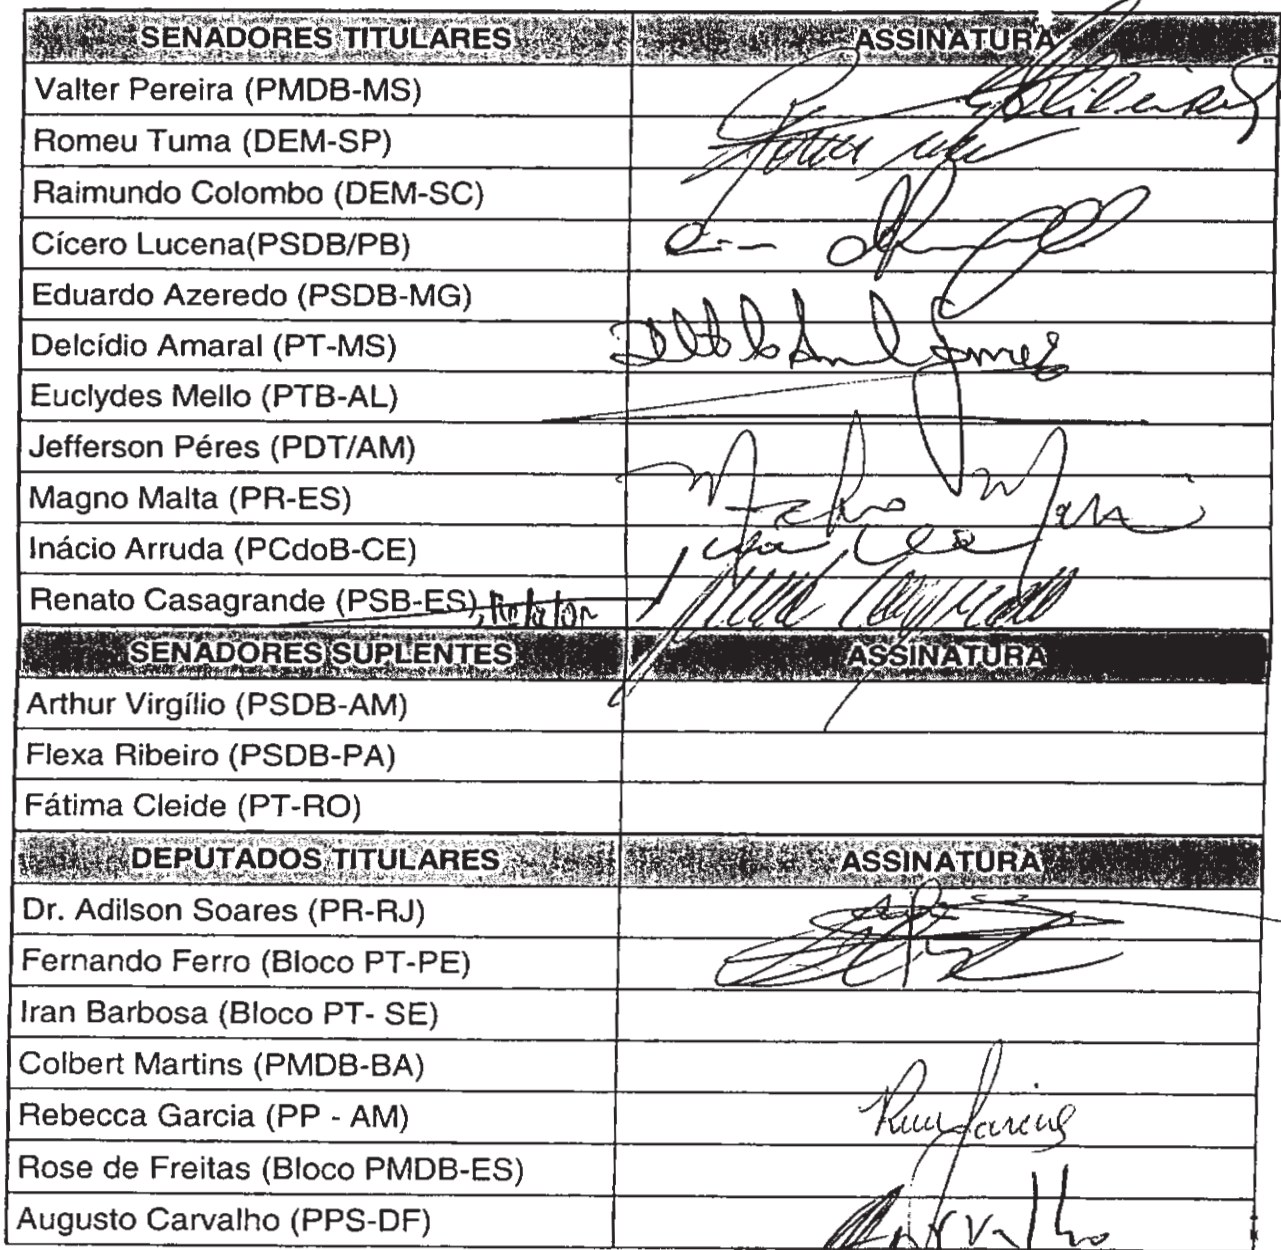 SENADORES TITULARES ASSINATURA
Valter Pereira (PMDB-MS)
Romeu Tuma (DEM-SP)
Raimundo Colombo (DEM-SC)
Cícero Lucena(PSDB/PB)
Eduardo Azeredo (PSDB-MG)
Delcídio Amaral (PT-MS)
Euclydes Mello (PTB-AL)
Jefferson Péres (PDT/AM)
Magno Malta (PR-ES)
Inácio Arruda (PCdoB-CE)
Renato Casagrande (PSB-ES), Relator
SENADORES SUPLENTES ASSINATURA
Arthur Virgílio (PSDB-AM)
Flexa Ribeiro (PSDB-PA)
Fátima Cleide (PT-RO)
DEPUTADOS TITULARES ASSINATURA
Dr. Adilson Soares (PR-RJ)
Fernando Ferro (Bloco PT-PE)
Iran Barbosa (Bloco PT- SE)
Colbert Martins (PMDB-BA)
Rebecca Garcia (PP - AM)
Rose de Freitas (Bloco PMDB-ES)
Augusto Carvalho (PPS-DF)